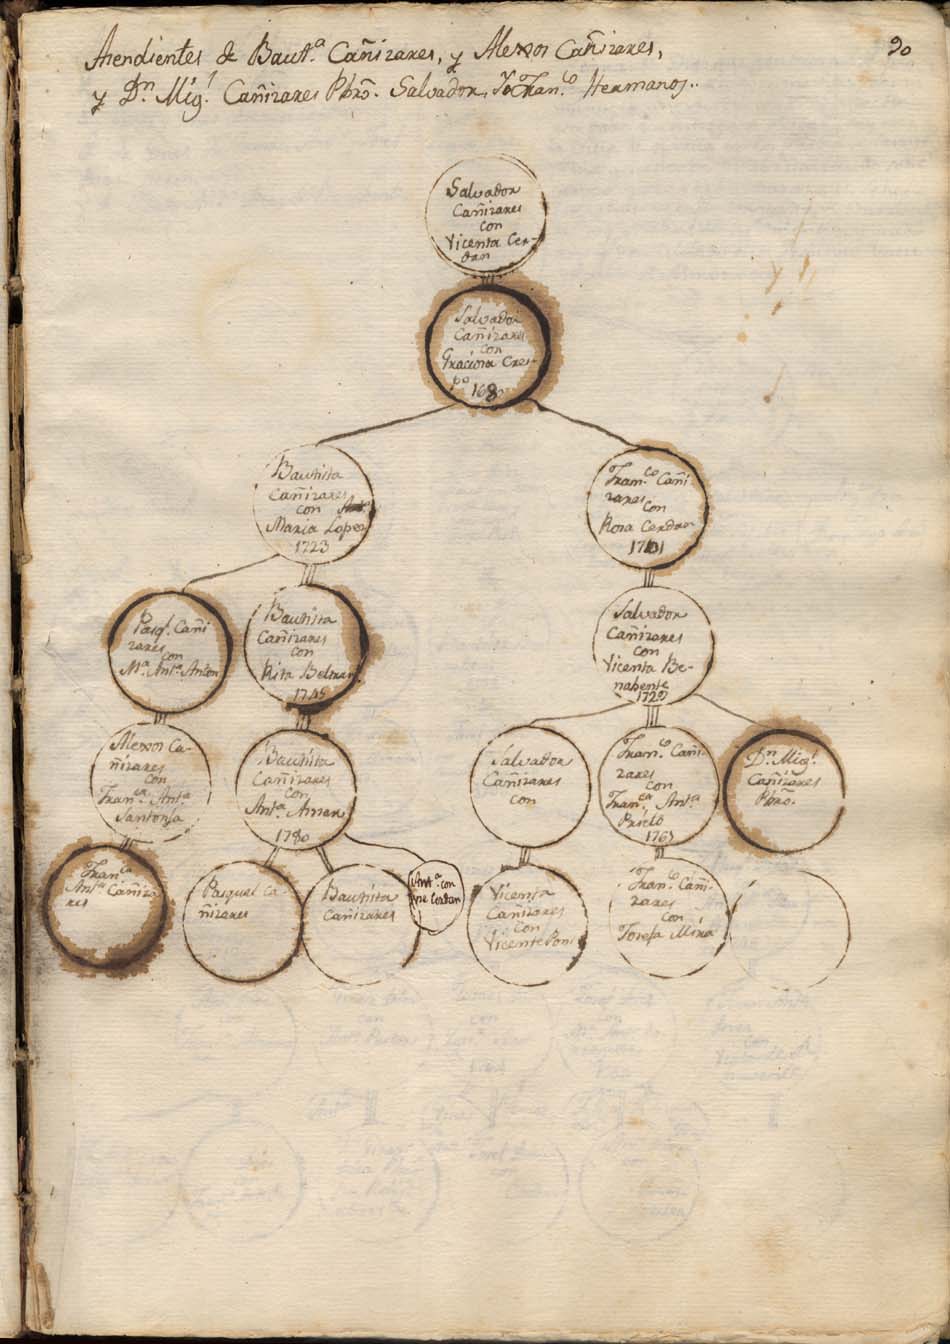 Asendientes de Baut.ª Cañizares, y Alexos Cañizares,
90
y D.n Mig.l Cañizares Pbrō. Salvador, y Fran.co Hermanos.
Salvador
Cañizares
con
Vicenta Cer-
dan
Salvador
Cañizares
con
Graciosa Cres-
po
Bautista
Cañizares
con
Maria Lopez
1723
Fran.co Cañi-
zares
con
Rosa Cerdan
Pasq.l Cañi
zares
con
M.ª Ant.ª Anton
Bautista
Cañizares
con
Rita Beltran
1745
Salvador
Cañizares
con
Vicenta Be-
nabente
Alexos Ca-
ñizares
con
Fran.ca Ant.ª
Santonja
Bautista
Cañizares
con
Ant.ª
1780
Salvador
Cañizares
con
Fran.co Cañi-
zares
con
Fran.ca Ant.ª
Prieto
D.n Mig.l
Cañizares
Pbrō.
Fran.ca
Ant.ª Cañiza
res
Pasqual Ca-
ñizares
Bautista
Cañizares
Ant.ª con
Cerdan
Vicenta
Cañizares
con
Vicente
Fran.co Cañi-
zares
con
Josefa Mira